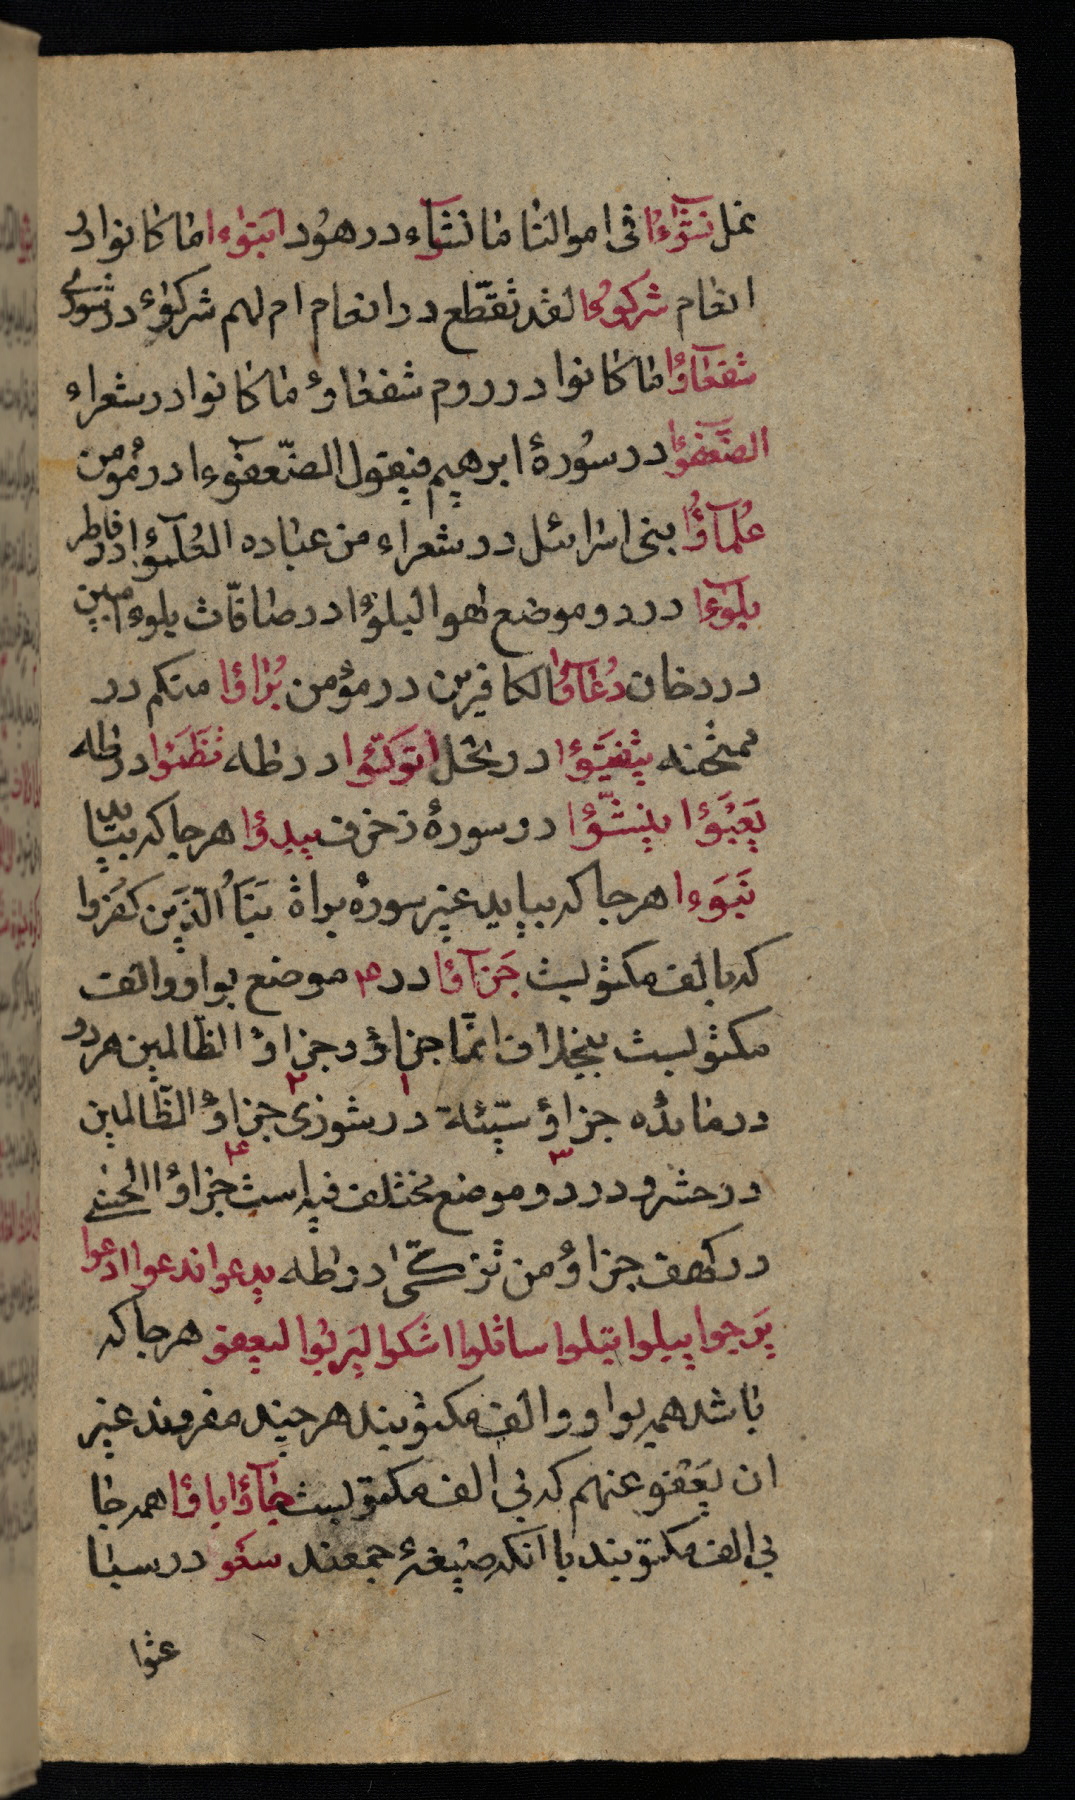 نمل نَشٰۤؤُا فی اموالنا ما نشٰۤاء در هُود انبٰۤوءا ما کانوا در
انعام شرکٰۤوءا لقد تقطّع در انعام ام لهم شرکوٴ در شوری
شفعاۤؤا ما کانوا در روم شفعاوٴ ما کانوا در شعراء
الضُّعفٰۤؤا در سُورهٔ ابرهیم فیقول الضّعفٰۤوءا در مؤمن
عُلمآؤُا بنی اسرائل در شعراء من عباده العُلمٰۤؤا در فاطر
بلٰۤوءا در دو موضع لهو البلؤا در صافّات بلوءا مبین
در دخان دُعاۤؤا الکافرین در مؤمن بُراؤا منکم در
ممتحنه یتفیّؤا در نحل اتوکّؤا در طه تظمؤا در طه
یَعبَؤا ینشّؤا در سورهٔ زخرف یبدؤا هر جا که بیاید
نَبَوءا هر جا که بیاید غیر سورهٔ براة نبَأُ الّذین کفروا
که بالف مکتوبست جَزآؤا در ۴ موضع بواو والف
مکتوبست بیخلاف انّما جزاؤ و جزاؤ الظّالمین هر دو
در مائده جزاؤ سیّئة در شوری جزاؤ الظّالمین
در حشر و در دو موضع مختلف فیه است جزاؤا الحسنی
در کهف جزاؤ من تزکّی در طه یدعوا ندعوا ادعوا
یَرجوا یبلوا تتلوا ساتلوا اشکوا لیَربُوا لیعفو هر جا که
باشد همه بواو والف مکتوبند هر چند مفردند غیر
ان یَعْفو عنهم که بی الف مکتوبست جآؤا باؤا همه جا
بی الف مکتوبند با انکه صیغهٔ جمعند سعَو در سبا
عتوا